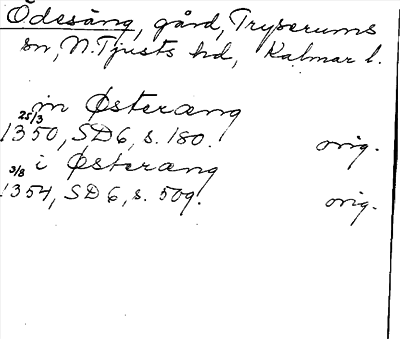 Ödesäng, gård, Tryserums
sn, N. Tjusts hd, Kalmar l.
in Østeræng
25/3 1350, SD 6, s. 180. orig.
i Østeræng
3/8 1354, SD 6, s. 509. orig.